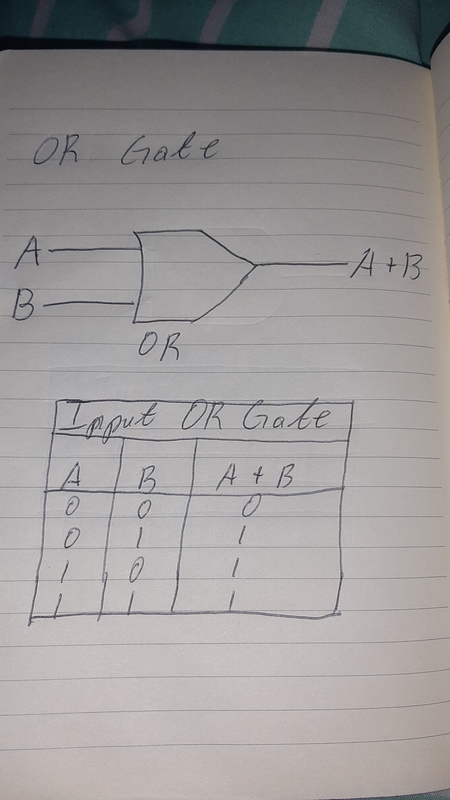 OR Gate
A
A+B
B
OR
Ipput OR Gate
A B A+B
0 0 0
0 1 1
1 0 1
1 1 1